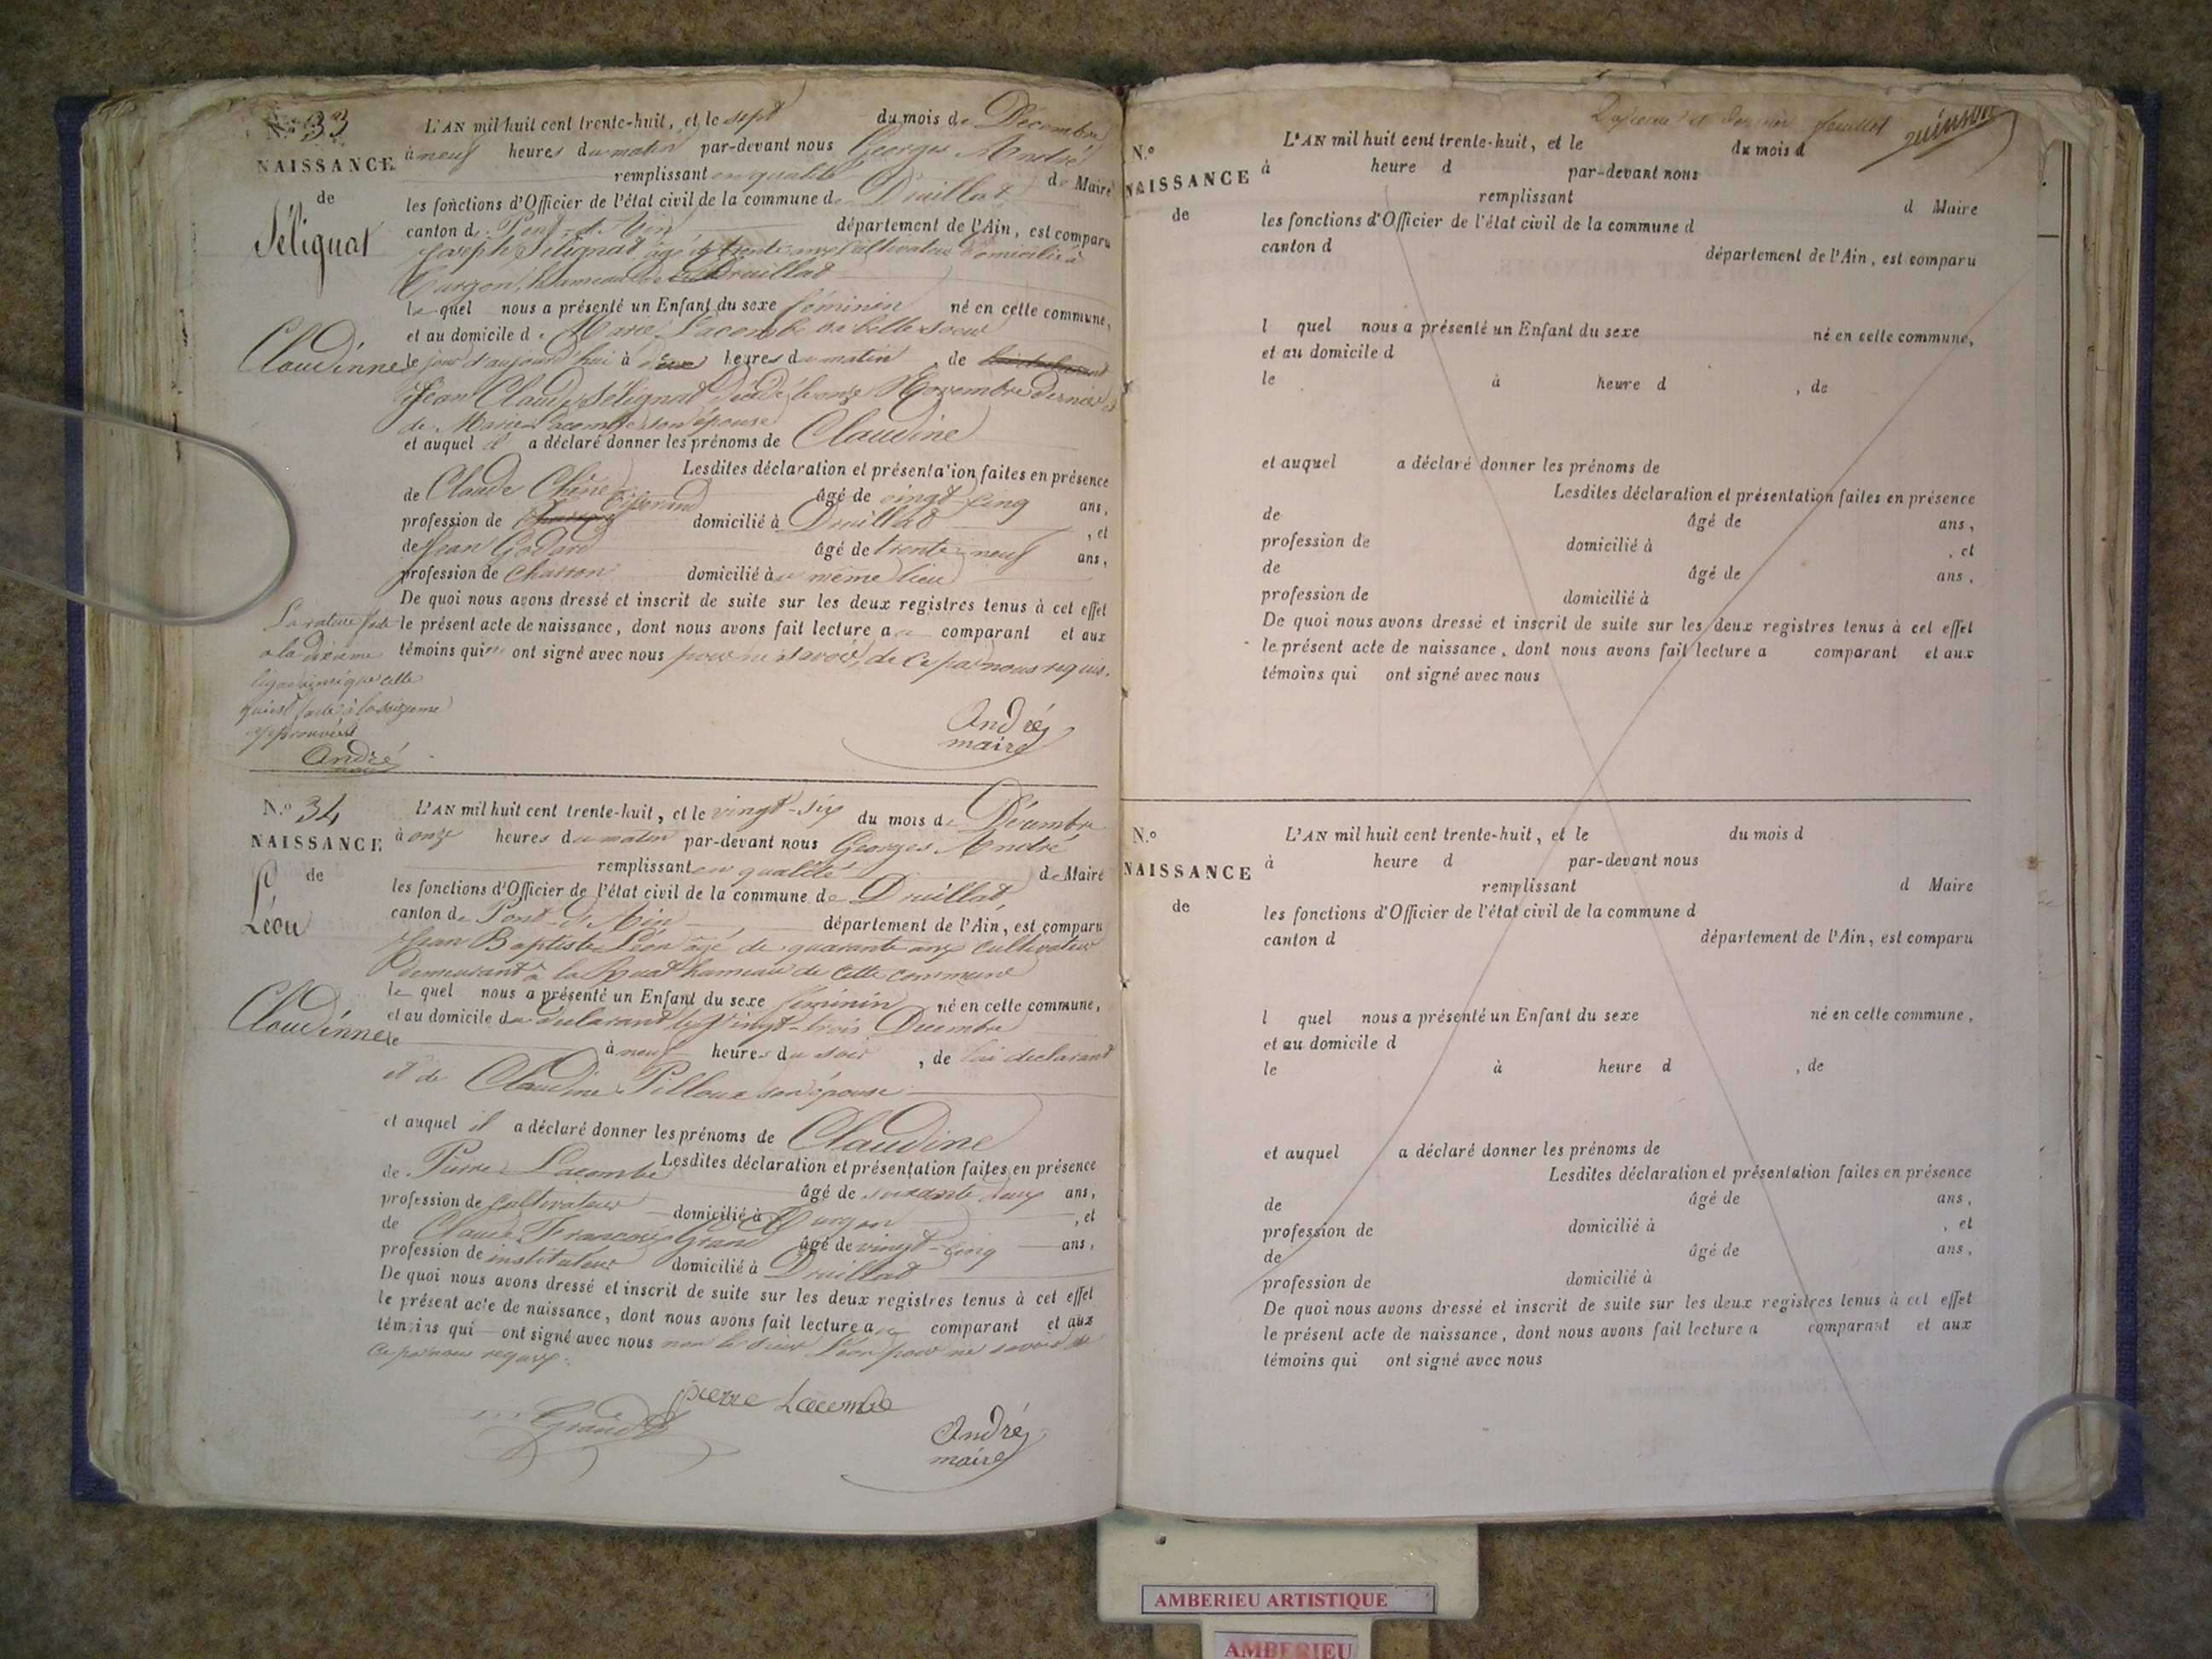 N.º 33
NAISSANCE
de
Séliguat
Claudinne
L'AN mil huit cent trente-huit, et le sept du mois de Décembre
à neuf heures du matin par-devant nous Georges André
remplissant en qualité de Maire
les fonctions d'Officier de l'état civil de la commune de Druillat
canton de Pont-d'Ain département de l'Ain, est comparu
Joseph Sélignat âgé de trente ans Cultivateur domicilié à
Turgon, hameau de Druillat
le quel nous a présenté un Enfant du sexe féminin né en cette commune,
et au domicile de Marie Lacombe sa belle soeur
le jour d'aujourd'hui à deux heures du matin, de
Jean Claude Sélignat Décédé le onze Novembre dernier et
de Marie Lacombe son épouse
et auquel il a déclaré donner les prénoms de Claudine
Lesdites déclaration et présentation faites en présence
de Claude Chêne âgé de vingt-cinq ans,
profession de Tisserand domicilié à Druillat, et
de Jean Godard âgé de trente-neuf ans,
profession de Charron domicilié au même lieu
De quoi nous avons dressé et inscrit de suite sur les deux registres tenus à cet effet
le présent acte de naissance, dont nous avons fait lecture au comparant et aux
témoins qui n'ont signé avec nous pour ne savoir, de ce par nous requis.
La rature faite
à la dixième
ligne ainsi que celle
qui est faite à la seizième
approuvées
André
André
maire
N.º 34
NAISSANCE
de
Léon
Claudinne
L'AN mil huit cent trente-huit, et le vingt-six du mois de Décembre
à onze heures du matin par-devant nous Georges André
remplissant en qualité de Maire
les fonctions d'Officier de l'état civil de la commune de Druillat,
canton de Pont-d'Ain département de l'Ain, est comparu
Jean Baptiste Léon âgé de quarante ans cultivateur
demeurant à la Ruat hameau de cette commune
le quel nous a présenté un Enfant du sexe féminin né en cette commune,
et au domicile du declarant le vingt-trois Décembre
le à neuf heures du soir, de lui declarant
et de Claudine Pilloux son épouse
et auquel il a déclaré donner les prénoms de Claudine
Lesdites déclaration et présentation faites en présence
de Pierre Lacombe âgé de soixante deux ans,
profession de cultivateur domicilié à Turgon, et
de Claude François Grand âgé de vingt-cinq ans,
profession de instituteur domicilié à Druillat
De quoi nous avons dressé et inscrit de suite sur les deux registres tenus à cet effet
le présent acte de naissance, dont nous avons fait lecture au comparant et aux
témoins qui ont signé avec nous non le sieur Léon pour ne savoir de
ce par nous requis.
pierre Lacombe
Grand
André
maire
et dernier feuillet
quinson
N.º
NAISSANCE
de
L'AN mil huit cent trente-huit, et le du mois d
à heure d par-devant nous
remplissant d Maire
les fonctions d'Officier de l'état civil de la commune d
canton d département de l'Ain, est comparu
l quel nous a présenté un Enfant du sexe né en cette commune,
et au domicile d
le à heure d , de
et auquel a déclaré donner les prénoms de
Lesdites déclaration et présentation faites en présence
de âgé de ans,
profession de domicilié à , et
de âgé de ans,
profession de domicilié à
De quoi nous avons dressé et inscrit de suite sur les deux registres tenus à cet effet
le présent acte de naissance, dont nous avons fait lecture a comparant et aux
témoins qui ont signé avec nous
N.º
NAISSANCE
de
L'AN mil huit cent trente-huit, et le du mois d
à heure d par-devant nous
remplissant d Maire
les fonctions d'Officier de l'état civil de la commune d
canton d département de l'Ain, est comparu
l quel nous a présenté un Enfant du sexe né en cette commune,
et au domicile d
le à heure d , de
et auquel a déclaré donner les prénoms de
Lesdites déclaration et présentation faites en présence
de âgé de ans,
profession de domicilié à , et
de âgé de ans,
profession de domicilié à
De quoi nous avons dressé et inscrit de suite sur les deux registres tenus à cet effet
le présent acte de naissance, dont nous avons fait lecture a comparant et aux
témoins qui ont signé avec nous
AMBERIEU ARTISTIQUE
AMBERIEU